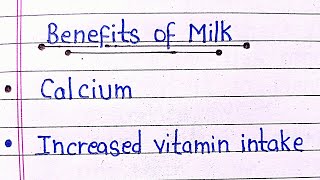 Benefits of Milk
Calcium
Increased vitamin intake